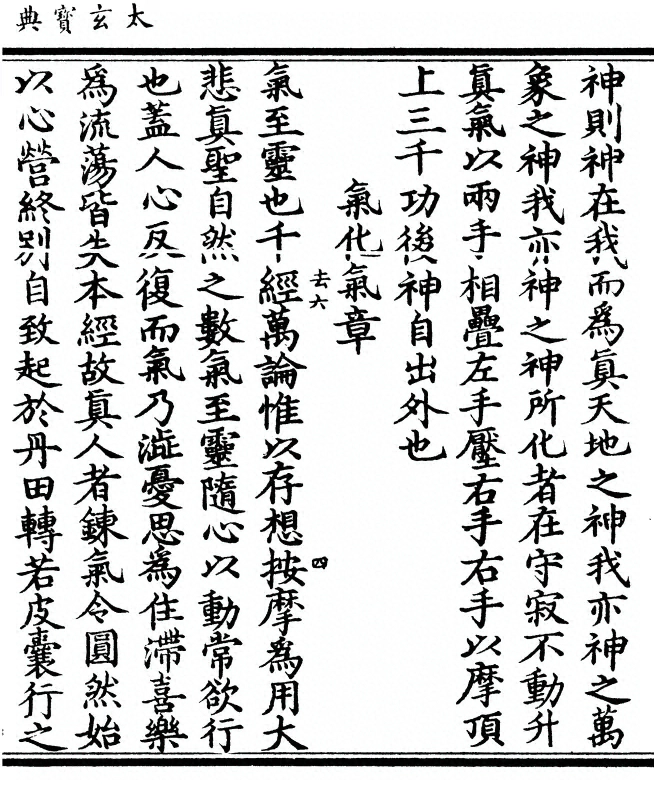 太玄寶典
神則神在我而爲眞天地之神我亦神之萬
象之神我亦神之神所化者在守寂不動升
眞氣以兩手相疊左手壓右手右手以摩頂
上三千功後神自出外也
氣化氣章
去六
四
氣至靈也千經萬論惟以存想按摩爲用大
悲眞聖自然之數氣至靈隨心以動常欲行
也蓋人心反復而氣乃澁憂思爲住滯喜樂
爲流蕩皆失本經故眞人者鍊氣令圓然始
以心營終別自致起於丹田轉若皮囊行之